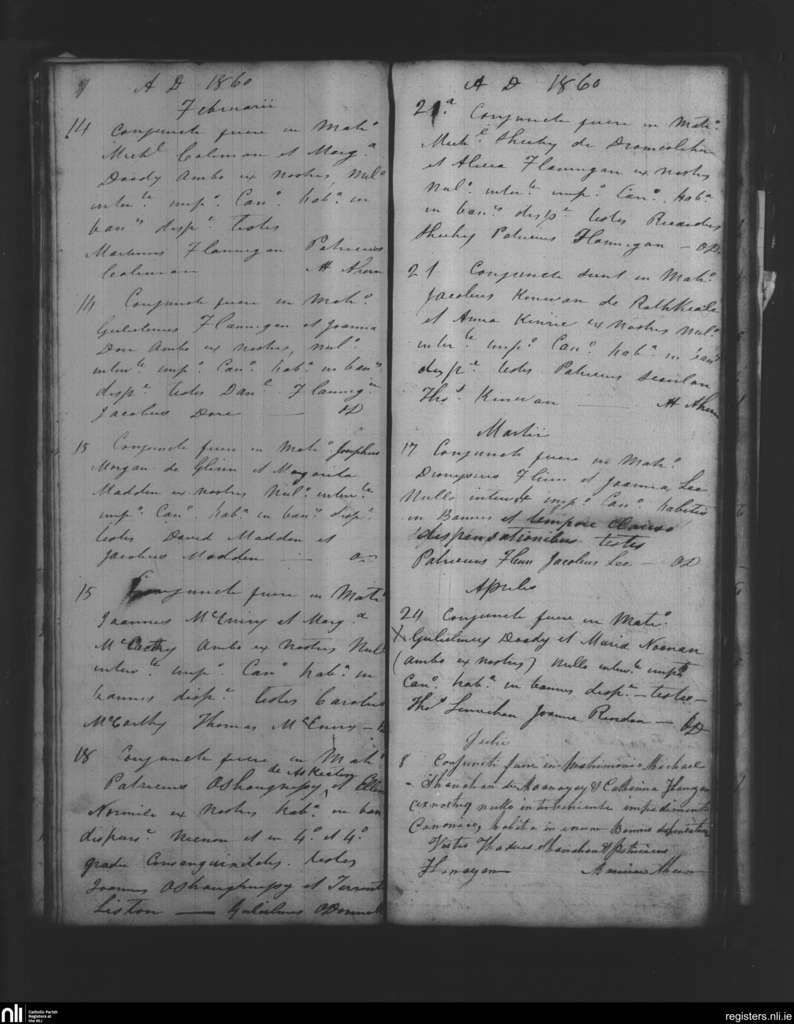 A D 1860
Februarii
14 Conjuncti fuere in Mati.
Michl Coleman et Marg.a
Doody Ambo ex nostris, Nulo
interte impo. Cano. haba. in
banis dispe. testes
Martinus Flannigan Patricius
Coleman
14 Conjuncti fuere in Mato.
Gulielmus Flannigan et Joanna
Dore Ambo ex nostris, Nulo
interte impo. Cano. haba. in banis
dispe. testes Danl Flannign
Jacobus Dore
15 Conjuncti fuere in Mato. Josephus
Morgan de Glinn et Margarita
Madden ex nostris Nulo. interte
impo. Cano. haba. in banis dispe.
testes David Madden et
Jacobus Madden
15 Conjuncti fuere in Mato
Joannes McEniry et Marg.a
McCarthy Ambo ex nostris Nulo
interte impo. Cano haba. in
bannis dispe. testes Carolus
McCarthy Thomas McEniry
18 Conjuncti fuere in Mato
de Askeaton
Patricius OShaughnessy, et Ellen
Normile ex nostris haba. in ban
dispense. necnon et in 4o. et 4o.
gradu Consanguinitatis. testes
Joannes OShaughnessy et Terrent
Liston — Gulielmus ODonnell
A D 1860
21.a Conjuncti fuere in Mati.
Michl Sheehy de Dromcolliher
et Alicia Flannigan ex nostris
Nulo. interte impo. Cano. haba.
in banis dispe. testes Ricardus
Sheehy Patricius Flannigan — OD
21 Conjuncti sunt in Mato.
Jacobus Kirwan de Rathkeale
et Anna Kinrie ex nostris Nulo
interte impo. Cano. haba. in banis
dispe. testes Patricius Scanlan
Thos. Kirwan
Martii
17 Conjuncti fuere in Mato.
Dionysius Flinn et Joanna Lee
Nullo interte impo. Cano. habitis
in Bannis et tempore clauso
dispensationibus testes
Patricius Flinn Jacobus Lee — OD
Aprilis
24 Conjuncti fuere in Mato.
X Gulielmus Doody et Maria Noonan
(ambo ex nostris) Nullo interte impo
Cano. haba. in bannis dispe. — testes —
Thos Lenrihan Joanna Riordan — OD
Julii
8 Conjuncti fuere in Matrimonio Michael
Shanahan de Monagay & Catherina Flanagan
ex nostris nullo interveniente impedimento
Canonico, habita in unum Bannis dispensation
Testes Thadeus Shanahan & Patricius
Flanagan
nli
Catholic Parish
Registers at
the NLI
registers.nli.ie